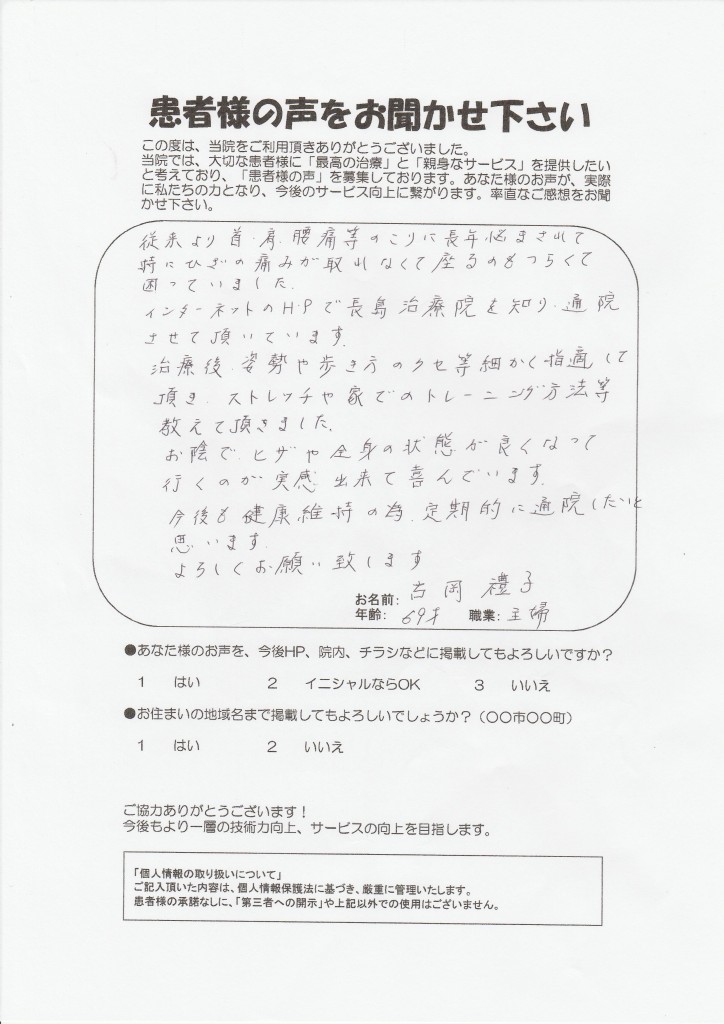 患者様の声をお聞かせ下さい
この度は、当院をご利用頂きありがとうございました。
当院では、大切な患者様に「最高の治療」と「親身なサービス」を提供したい
と考えており、「患者様の声」を募集しております。あなた様のお声が、実際
に私たちの力となり、今後のサービス向上に繋がります。率直なご感想をお聞
かせ下さい。
従来より首、肩、腰痛等のこりに長年悩まされて
特にひざの痛みが取れなくて座るのもつらくて
困っていました。
インターネットのH・Pで長島治療院を知り、通院
させて頂いています。
治療後、姿勢や歩き方のクセ等細かく指適して
頂き、ストレッチや家でのトレーニング方法等
教えて頂きました。
お陰で、ヒザや全身の状態が良くなって
行くのが実感出来て喜んでいます。
今後も健康維持の為、定期的に通院したいと
思います。
よろしくお願い致します
お名前: 吉岡 禮子
年齢: 69才 職業: 主婦
●あなた様のお声を、今後HP、院内、チラシなどに掲載してもよろしいですか?
1 はい 2 イニシャルならOK 3 いいえ
●お住まいの地域名まで掲載してもよろしいでしょうか?(〇〇市〇〇町)
1 はい 2 いいえ
ご協力ありがとうございます!
今後もより一層の技術力向上、サービスの向上を目指します。
「個人情報の取り扱いについて」
ご記入頂いた内容は、個人情報保護法に基づき、厳重に管理いたします。
患者様の承諾なしに、「第三者への開示」や上記以外での使用はございません。